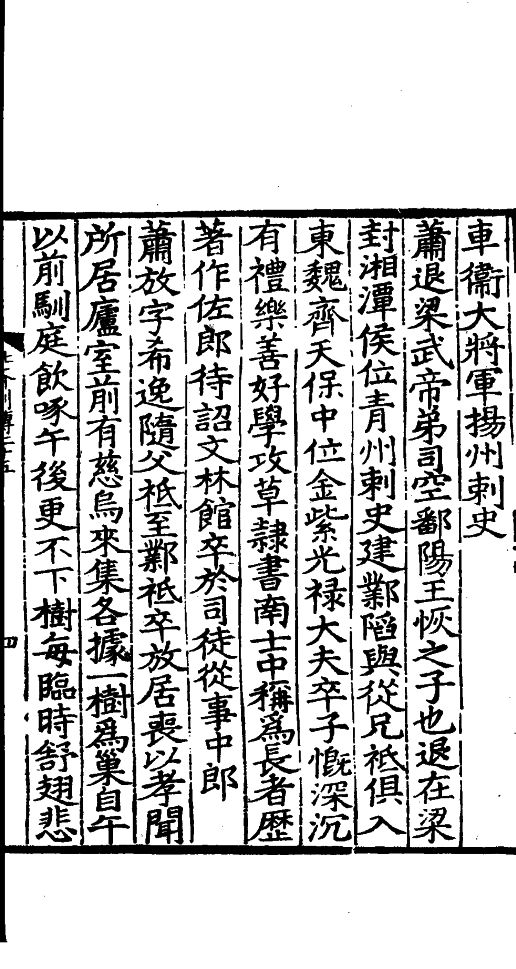 車衞大將軍揚州刺史
蕭退梁武帝弟司空鄱陽王恢之子也退在梁
封湘潭侯位青州刺史建鄴陷與從兄祗俱入
東魏齊天保中位金紫光禄大夫卒子慨深沉
有禮樂善好學攻草隸書南士中稱爲長者歷
著作佐郎待詔文林館卒於司徒從事中郎
蕭放字希逸隨父祗至鄴祗卒放居喪以孝聞
所居廬室前有慈烏來集各據一樹爲巢自午
以前馴庭飲啄午後更不下樹每臨時舒翅悲
四